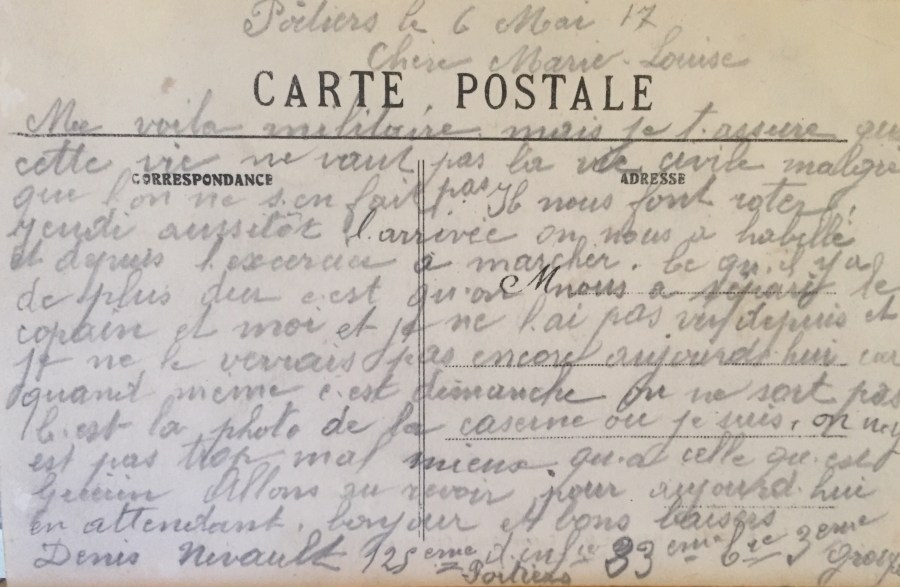 Poitiers le 6 Mai 17
Chère Marie-Louise
CARTE POSTALE
Me voila militaire. mais je t.assure que
cette vie ne vaut pas la vie civile malgré
CORRESPONDANCE
ADRESSE
que l'on ne s.en fait pas Il nous font roter,
jeudi aussitôt l.arrivée on nous a habellé
et depuis l.exercice à marcher. Ce qu.il y a
de plus dur c.est qu.on nous a séparé le
M
copain et moi et je ne l.ai pas vu depuis et
je ne le verrais pas encore aujourd.hui car
quand meme c.est dimanche on ne sort pas
C.est la photo de la caserne ou je suis, on n'y
est pas trop mal mieux. qu.a celle qu.est
Allons au revoir pour aujourd.hui
en attendant. bonjour et bons baisers
Denis Nivault 125 eme d.inf ie 33 eme Cie 3 eme
Poitiers